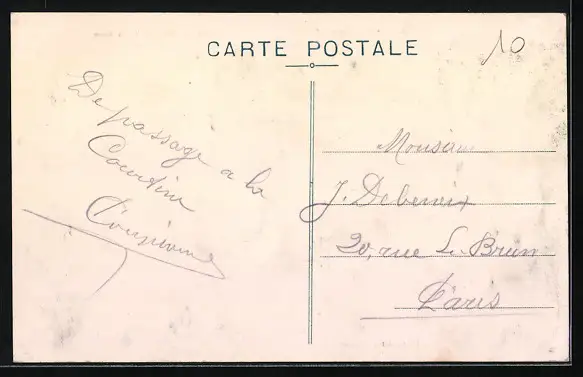 CARTE POSTALE
10
De passage a la
Courtine
Monsieur
J. Debervix
20, rue L. Brun
Paris